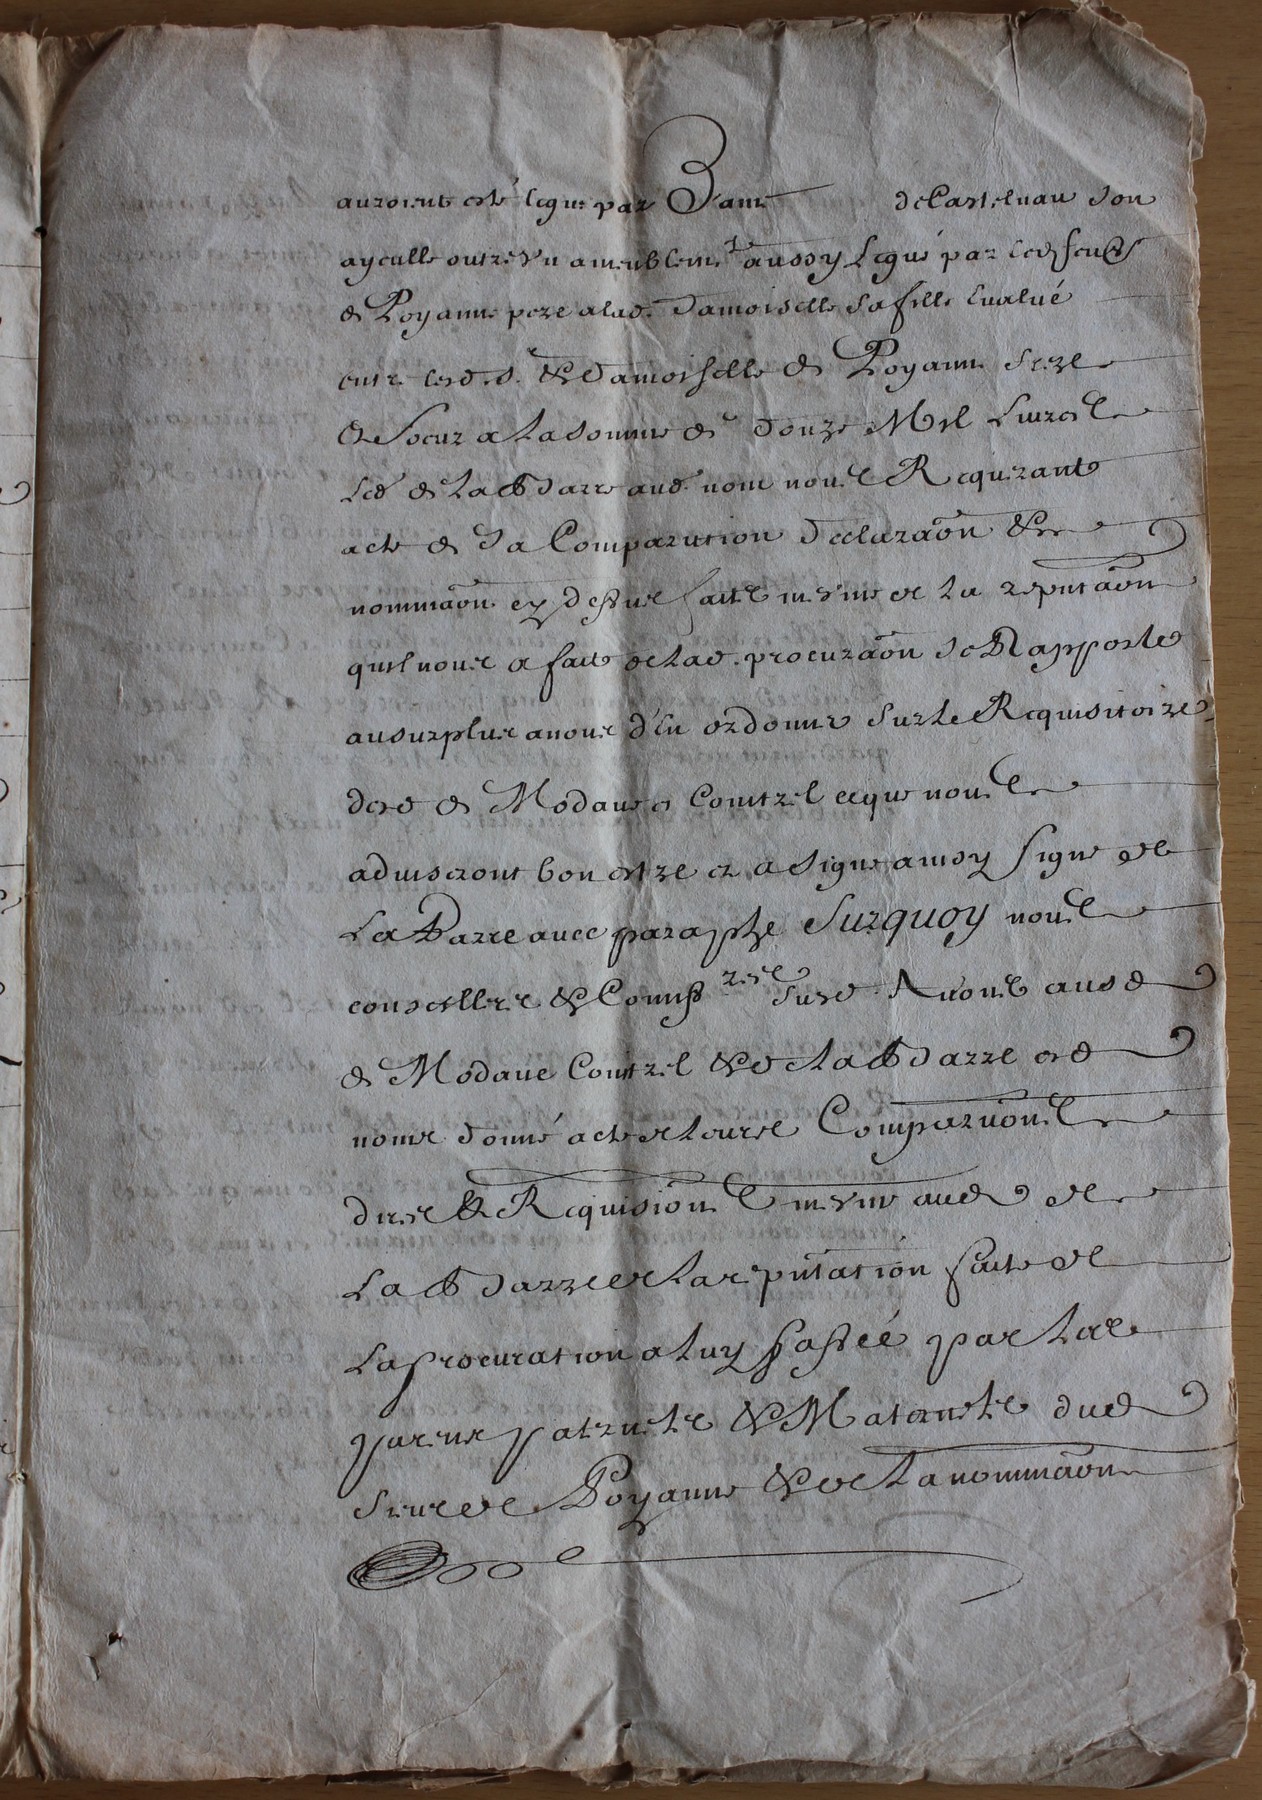 auroient esté legué par Dame de Castelnau son
ayeulle outre un ameublemt aussy Legué par led feu s
de Poyanne pere a lad. Damoiselle sa fille Evalué
entre lesd. s. & Damoiselle de Poyanne frere
& soeur a La somme de douze Mil Livres
Led de La Barre aud. nom nous Requerant
acte de sa Comparution declaraôn &
nommâon cy dessus faitte mesme de la
quil nous a faitte de lad. procuraôn se Rapporte
au surplus a nous d'En ordonner sur le Requisitoire
desd de Modave & Comtrel ce que nous
adviserons bon estre et a signé ainsy signé de
La Barre avec paraphe Surquoy nous
conseillers & Commissres susd. Avons ausd
de Modave Comtrel & de La Barre esd
noms donné acte de leurs Comparuôns
dires & Requisiôns mesme aud de
La Barre de la faite de
La procuration a luy passée par les
parens paternels & Maternels dud
sieur de Poyanne & de La nommâon